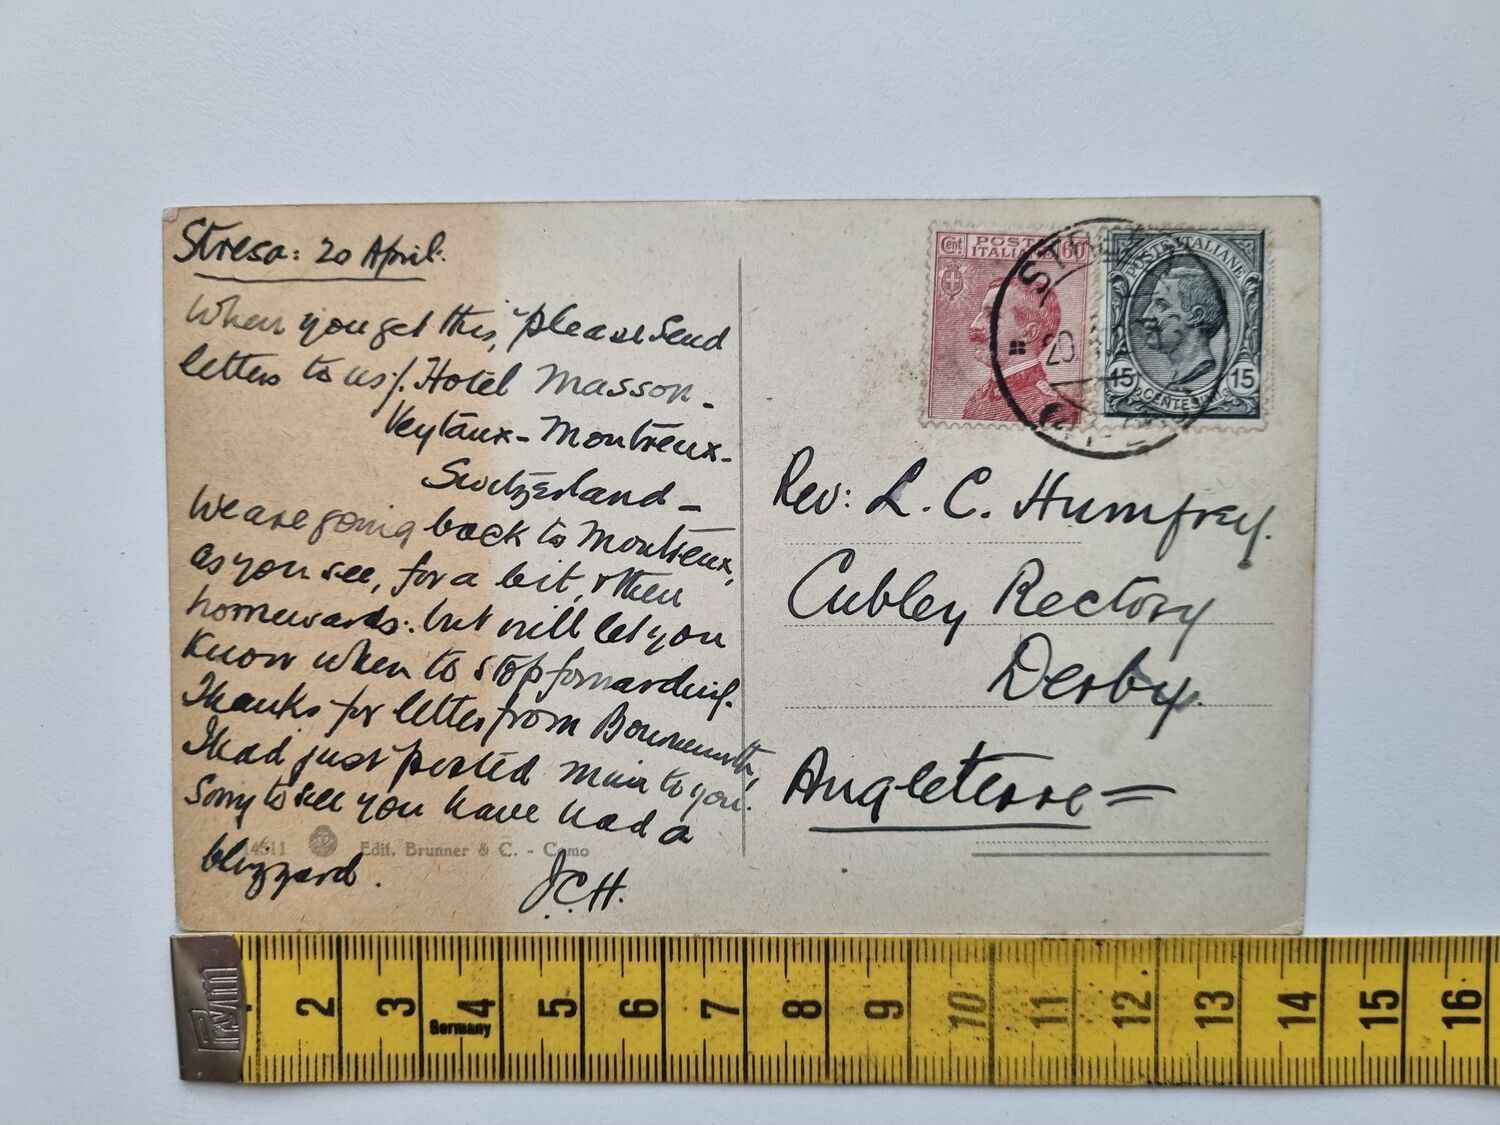 Stresa: 20 April.
When you get this, please send
letters to us/. Hotel Masson -
Veytaux - Montreux -
Switzerland -
We are going back to Montreux,
as you see, for a bit, & then
homewards: but will let you
know when to stop forwarding.
Thanks for letter from Bournemouth,
I had just posted mine to you.
Sorry to see you have had a
blizzard.
J.C.H.
14611
Edit. Brunner & C. - Como
Cent
POSTE
ITALIANE
60
POSTE ITALIANE
15
15
CENTESIMI
20
Rev: L. C. Humfrey.
Cubley Rectory
Derby.
Angleterre =
Prym
2 3 4 5 6 7 8 9 10 11 12 13 14 15 16
Germany